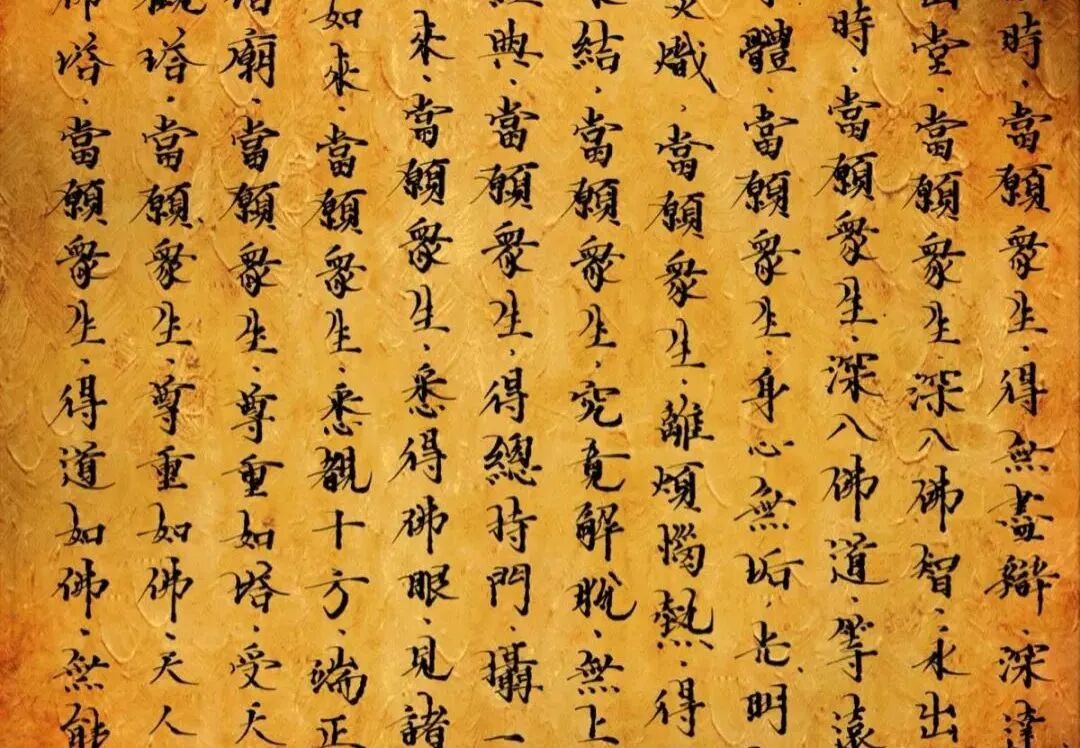 時、當願眾生、得無盡辯、深達
堂、當願眾生、深入佛智、永出
時、當願眾生、深入佛道、等
體、當願眾生、身心無垢、光明
炎熾、當願眾生、離煩惱熱、得
結、當願眾生、究竟解脫、無上
經典、當願眾生、得總持門、攝一
來、當願眾生、悉得佛眼、見諸
如來、當願眾生、悉觀十方、端正
塔廟、當願眾生、尊重如塔、受天
觀塔、當願眾生、尊重如佛、天人
佛塔、當願眾生、得道如佛、無能